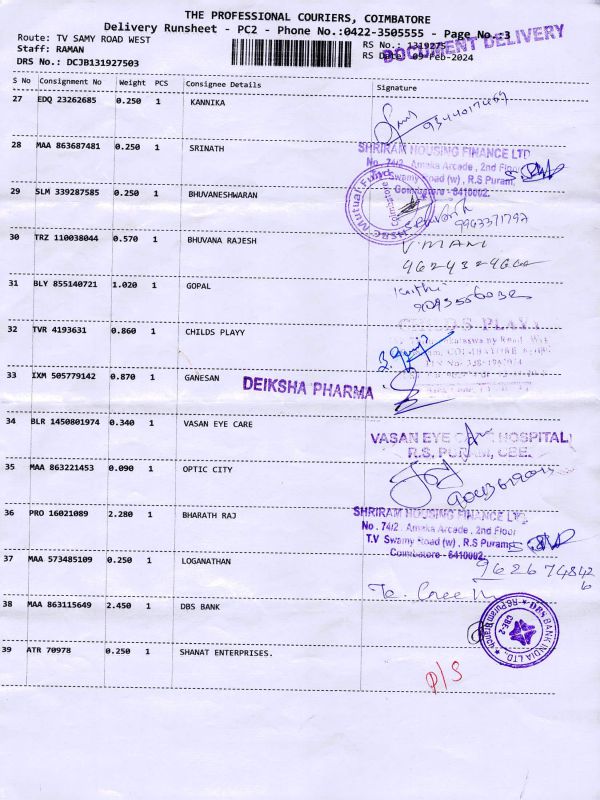 THE PROFESSIONAL COURIERS, COIMBATORE
Delivery Runsheet - PC2 - Phone No.:0422-3505555 - Page No.:3
DOCUMENT DELIVERY
Route: TV SAMY ROAD WEST
RS No.: 1319275
Staff: RAMAN
RS Date: 09-Feb-2024
DRS No.: DCJB131927503
S No Consignment No Weight PCS Consignee Details Signature
27 EDQ 23262685 0.250 1 KANNIKA
28 MAA 863687481 0.250 1 SRINATH
SHRIRAM HOUSING FINANCE LTD
No. 74/2, Amaka Arcade, 2nd Floor
Swamy Road (w), R.S Puram,
Coimbatore - 6410002.
29 SLM 339287585 0.250 1 BHUVANESHWARAN
HSBC Mutual Fund
9963371797
30 TRZ 110038044 0.570 1 BHUVANA RAJESH
V. MANI
31 BLY 855140721 1.020 1 GOPAL
32 TVR 4193631 0.860 1 CHILDS PLAYY
CHILDS PLAYY
33 IXM 505779142 0.870 1 GANESAN
DEIKSHA PHARMA
34 BLR 1450801974 0.340 1 VASAN EYE CARE
VASAN EYE CARE HOSPITAL
R.S. PURAM, CBE.
35 MAA 863221453 0.090 1 OPTIC CITY
36 PRO 16021089 2.280 1 BHARATH RAJ
SHRIRAM HOUSING FINANCE LTD.
No. 74/2, Amaka Arcade, 2nd Floor
T.V Swamy Road (w), R.S Puram,
Coimbatore - 6410002.
37 MAA 573485109 0.250 1 LOGANATHAN
38 MAA 863115649 2.450 1 DBS BANK
DBS BANK INDIA LTD.
CBE-2
39 ATR 70978 0.250 1 SHANAT ENTERPRISES.
P/S